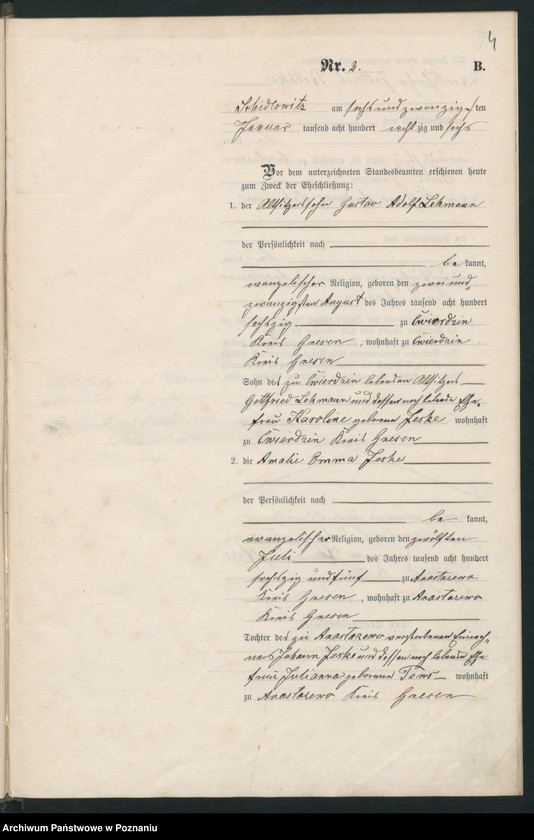 4
Nr. 2. B.
Schidlowitz am sechs und zwanzigsten
Januar tausend acht hundert achtzig und sechs
Vor dem unterzeichneten Standesbeamten erschienen heute
zum Zweck der Eheschließung:
1. der Altsitzersohn Gustav Adolf Lehmann
der Persönlichkeit nach
be kannt,
evangelischer Religion, geboren den zwei und
zwanzigsten August des Jahres tausend acht hundert
sechszig zu Cwierdzin
Kreis Gnesen, wohnhaft zu Cwierdzin
Kreis Gnesen
Sohn des zu Cwierdzin lebenden Altsitzers
Gottfried Lehmann und dessen noch lebende Ehe-
frau Karoline geborene Jeske wohnhaft
zu Cwierdzin Kreis Gnesen
2. die Amalie Emma Jeske
der Persönlichkeit nach
be kannt,
evangelischer Religion, geboren den zwölften
Juli des Jahres tausend acht hundert
sechszig und fünf zu Anastazewo
Kreis Gnesen, wohnhaft zu Anastazewo
Kreis Gnesen
Tochter des zu Anastazewo verstorbenen Einwoh-
ners Johann Jeske und dessen noch lebende Ehe-
frau Julianna geborene wohnhaft
zu Anastazewo Kreis Gnesen
Archiwum Państwowe w Poznaniu